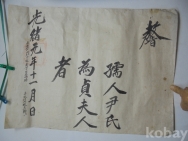 敎
孺人尹氏
為貞夫人
者
光緖元年十一月日
kobay